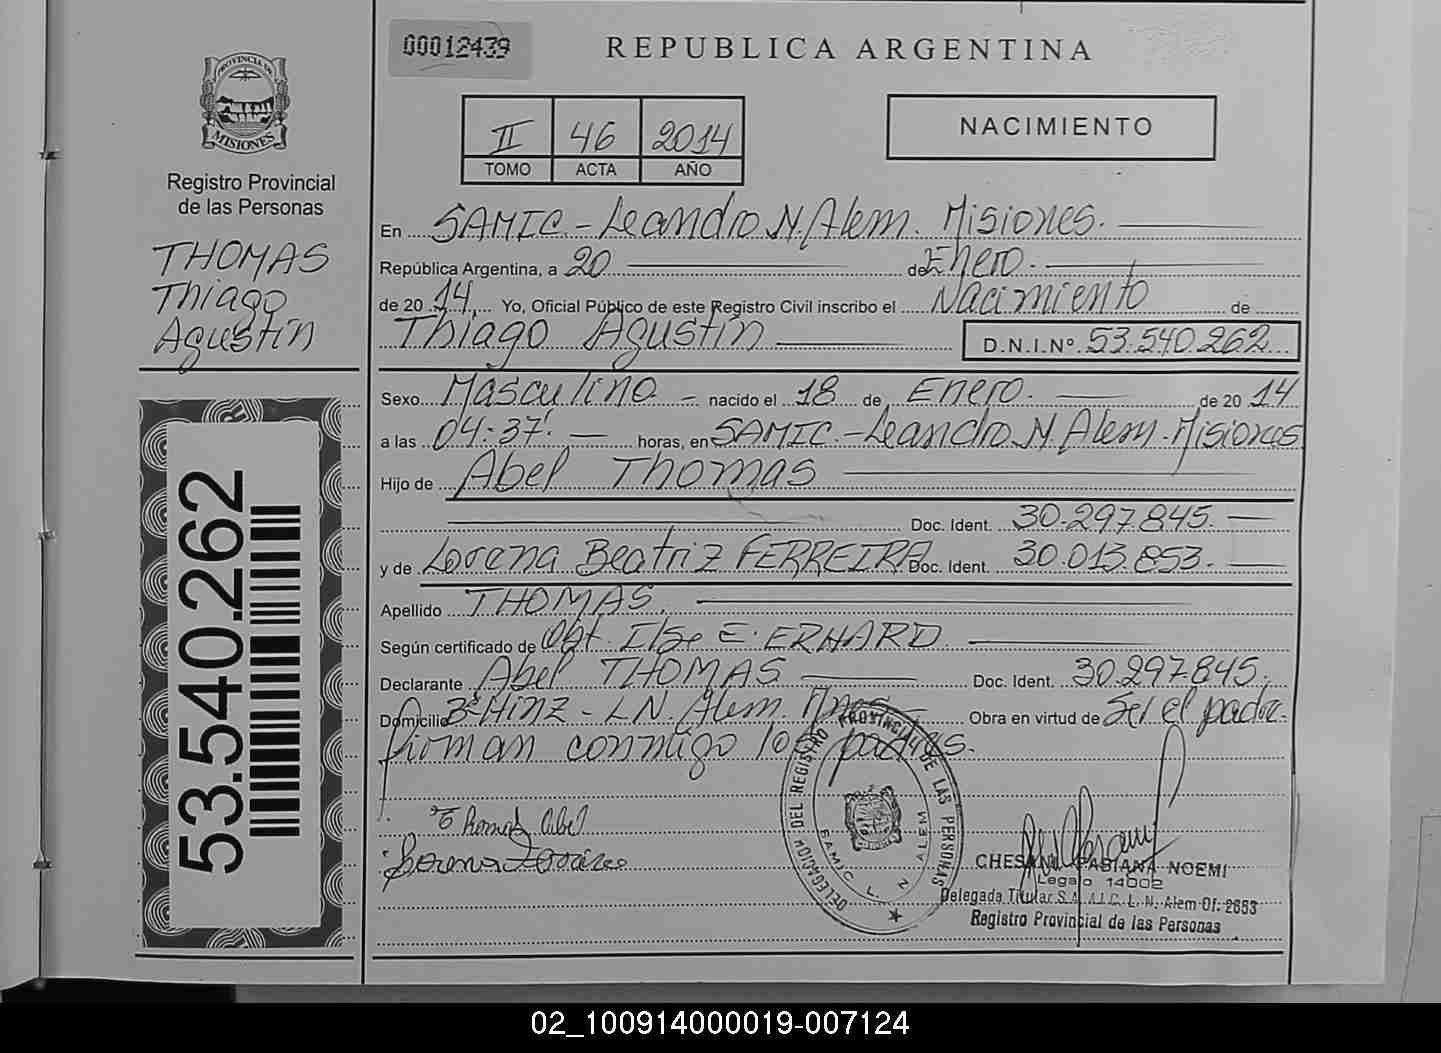 00012439
REPUBLICA ARGENTINA
PROVINCIA DE
MISIONES
II 46 2014
TOMO ACTA AÑO
NACIMIENTO
Registro Provincial
de las Personas
THOMAS
Thiago
Agustín
En SAMIC.-Leandro N. Alem. Misiones.
República Argentina, a 20 de Enero
de 2014, Yo, Oficial Público de este Registro Civil inscribo el Nacimiento de
Thiago Agustín D.N.I.Nº 53.540.262
Sexo Masculino - nacido el 18 de Enero. de 2014
a las 04:37. horas, en SAMIC.-Leandro N Alem-Misiones
Hijo de Abel Thomas
Doc. Ident. 30.297.845.
y de Lorena Beatriz FERREIRA Doc. Ident. 30.013.853.
Apellido THOMAS.
Según certificado de Obt. Ilse E. ERHARD
Declarante Abel THOMAS Doc. Ident. 30.297.845.
Domicilio Bº Hinz - L.N. Alem. Mnes Obra en virtud de Ser el padre.
firman conmigo los padres.
53.540.262
Thomas Abel
DELEGACION DEL REGISTRO PROVINCIAL DE LAS PERSONAS
SAMIC L. N. ALEM
CHESANI FABIANA NOEMI
Legajo 14002
Delegada Titular S.A.M.I.C. L. N. Alem Of. 2653
Registro Provincial de las Personas
02_100914000019-007124